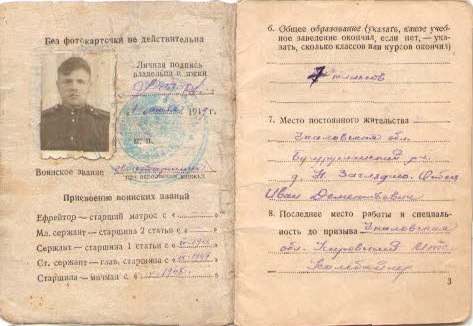 Без фотокарточки не действительна
Личная подпись
владельца книжки
1947 г.
м. п.
Воинское звание
при заполнении книжки
Присвоение воинских званий
Ефрейтор — старший матрос с «
Мл. сержант — старшина 2 статьи с «
Сержант — старшина 1 статьи с «
Ст. сержант — глав. старшина с «
Старшина — мичман с «
6. Общее образование (указать, какое учеб-
ное заведение окончил, если нет, — ука-
зать, сколько классов или курсов окончил)
7 классов
7. Место постоянного жительства
Чкаловская обл.
Бугурусланский
д. Н. Заглядино. Отец
Иван Дементьевич
8. Последнее место работы и специаль-
ность до призыва Чкаловская
обл. Кировский
Комбайнер
3